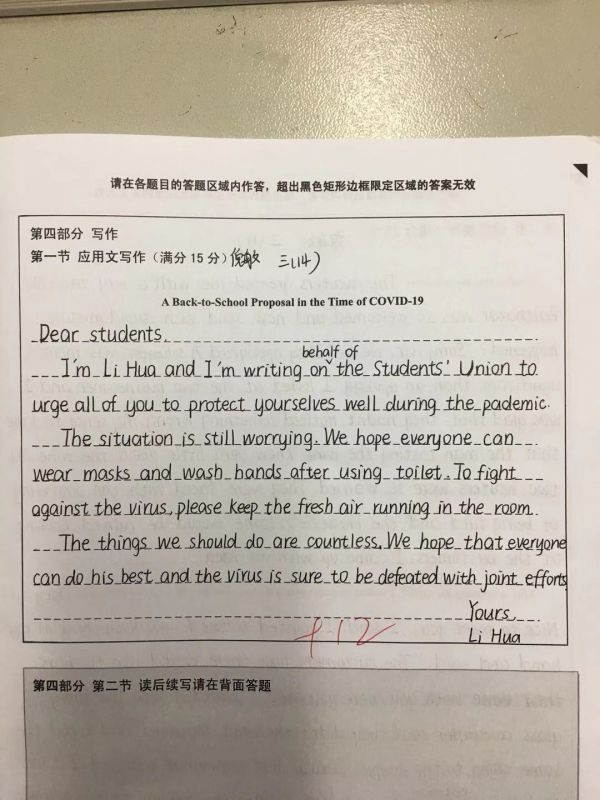 请在各题目的答题区域内作答，超出黑色矩形边框限定区域的答案无效
第四部分 写作
第一节 应用文写作（满分 15 分） 倪敏 三(14)
A Back-to-School Proposal in the Time of COVID-19
Dear students
behalf of
I'm Li Hua and I'm writing on the Students' Union to
urge all of you to protect yourselves well during the pademic.
The situation is still worrying. We hope everyone can
wear masks and wash hands after using toilet. To fight
against the virus, please keep the fresh air running in the room.
The things we should do are countless. We hope that everyone
can do his best and the virus is sure to be defeated with joint efforts
Yours
Li Hua
+12
第四部分 第二节 读后续写请在背面答题